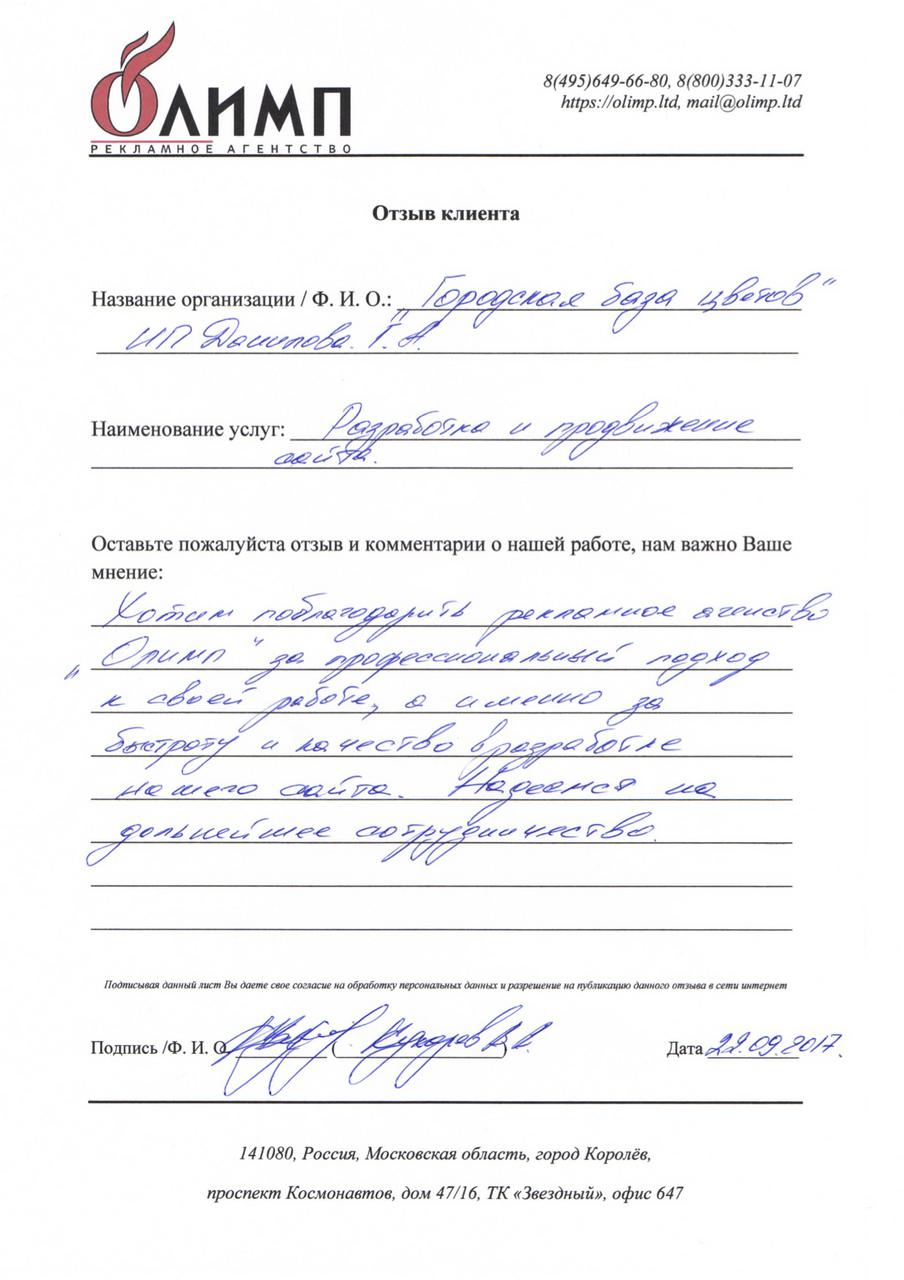 ОЛИМП
РЕКЛАМНОЕ АГЕНТСТВО
8(495)649-66-80, 8(800)333-11-07
https://olimp.ltd, mail@olimp.ltd
Отзыв клиента
Название организации / Ф. И. О.: „Городская база цветов“
ИП Данилова. Г. А.
Наименование услуг: Разработка и продвижение
сайта.
Оставьте пожалуйста отзыв и комментарии о нашей работе, нам важно Ваше
мнение:
Хотим поблагодарить рекламное агенство
„Олимп“ за профессиональный подход
к своей работе, а именно за
быстроту и качество в разработке
нашего сайта. Надеемся на
дальнейшее сотрудничество.
Подписывая данный лист Вы даете свое согласие на обработку персональных данных и разрешение на публикацию данного отзыва в сети интернет
Подпись /Ф. И. О. ( )
Дата 22.09.2017.
141080, Россия, Московская область, город Королёв,
проспект Космонавтов, дом 47/16, ТК «Звездный», офис 647